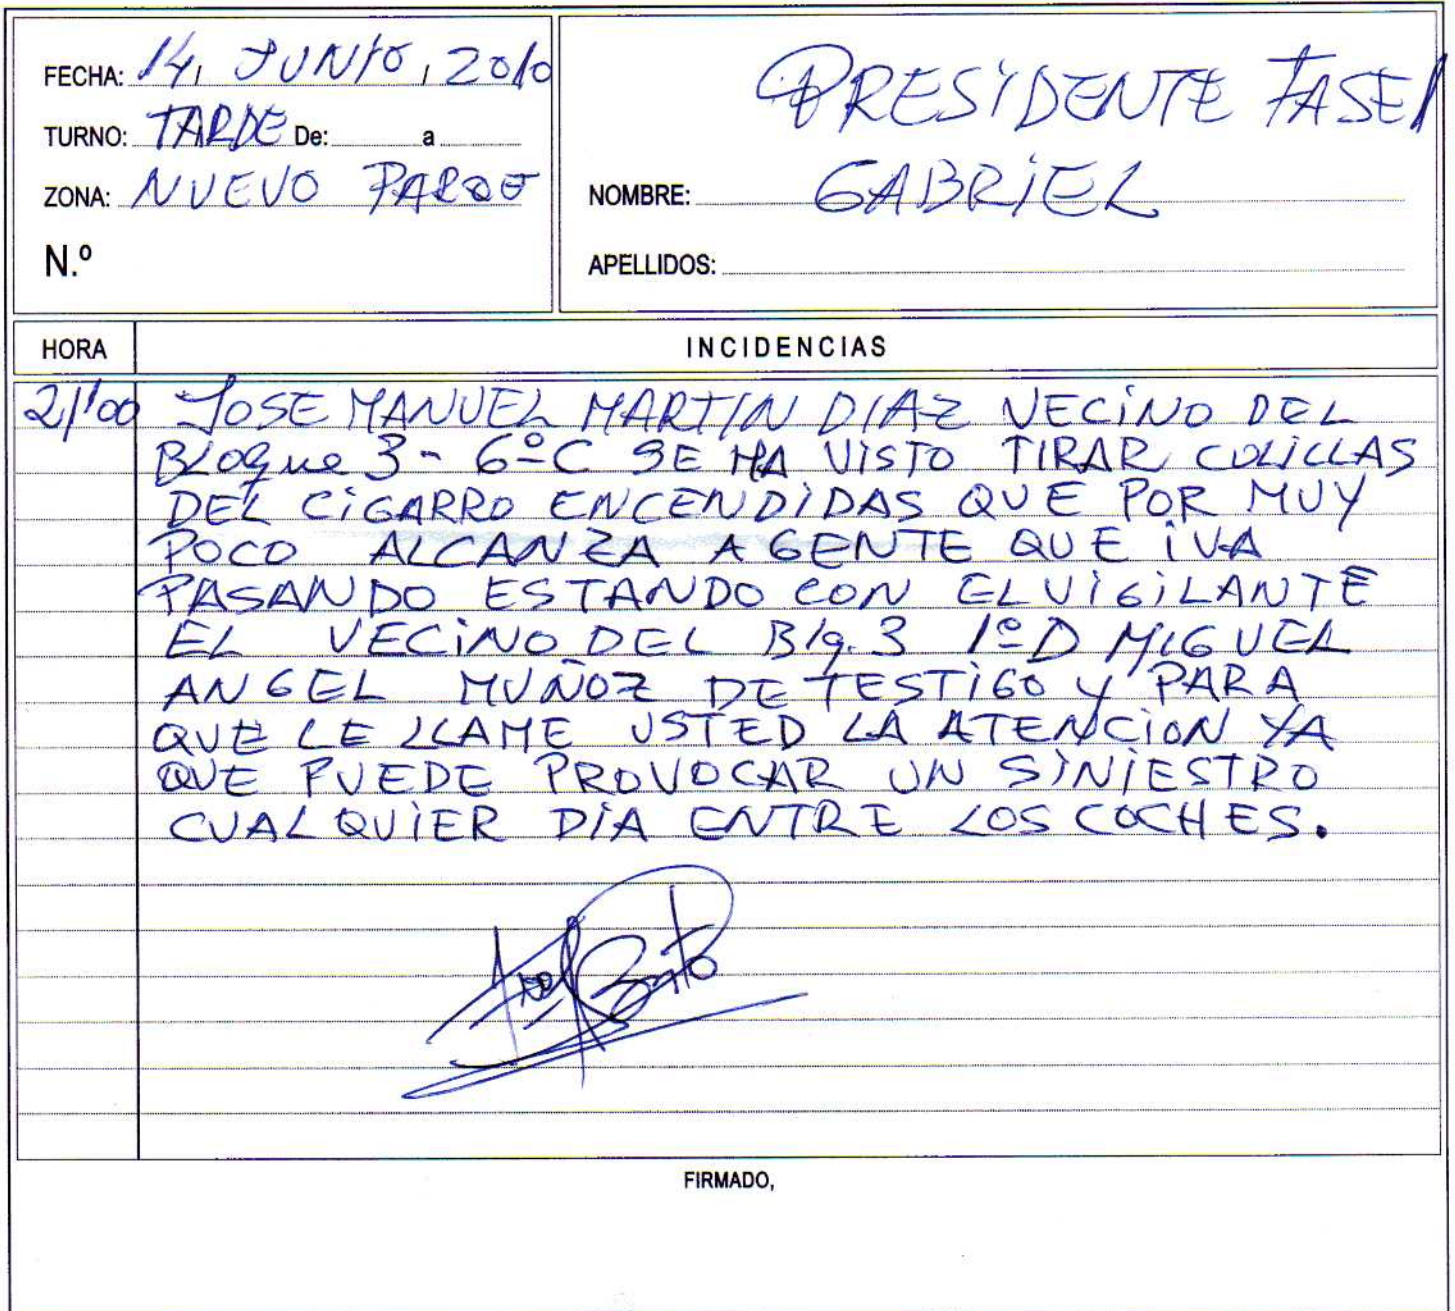 FECHA: 14, JUNIO, 2010
TURNO: TARDE De: a
ZONA: NUEVO PARQE
N.º
PRESIDENTE FASE 1
NOMBRE: GABRIEL
APELLIDOS:
HORA INCIDENCIAS
21'00 JOSE MANUEL MARTIN DIAZ VECINO DEL
BLoque 3 - 6º C SE HA VISTO TIRAR COLILLAS
DEL CIGARRO ENCENDIDAS QUE POR MUY
POCO ALCANZA A GENTE QUE IVA
PASANDO ESTANDO CON EL VIGILANTE
EL VECINO DEL Blq. 3 1º D MIGUEL
ANGEL MUÑOZ DE TESTIGO Y PARA
QUE LE LLAME USTED LA ATENCION YA
QUE PUEDE PROVOCAR UN SINIESTRO
CUALQUIER DÍA ENTRE LOS COCHES.
FIRMADO,